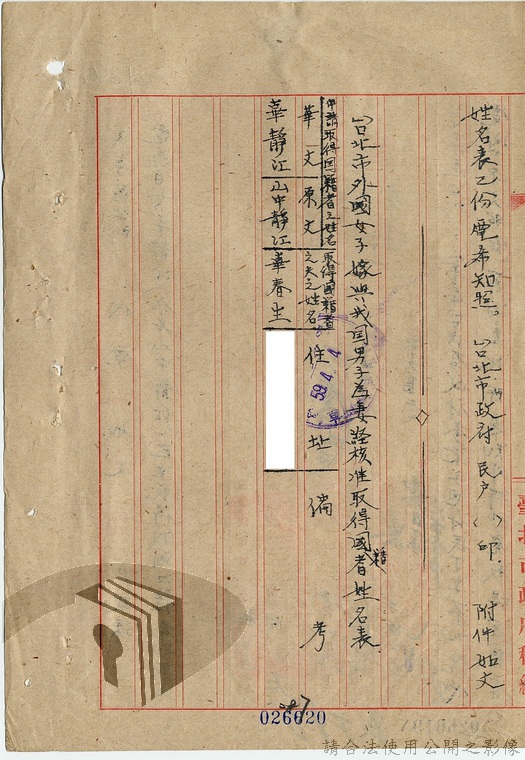 姓名表乙份電希知照。 台北市政府民戶( )印 附件如文
台北市外國女子嫁與我国男子為妻経核准取得國籍者姓名表
申請取得囯籍者之姓名
華文
原文
取得國籍者之夫之姓名
住址
備考
華靜江
山中靜江
華春生
59.4.4
臺北市政府
026020
請合法使用公開之影像